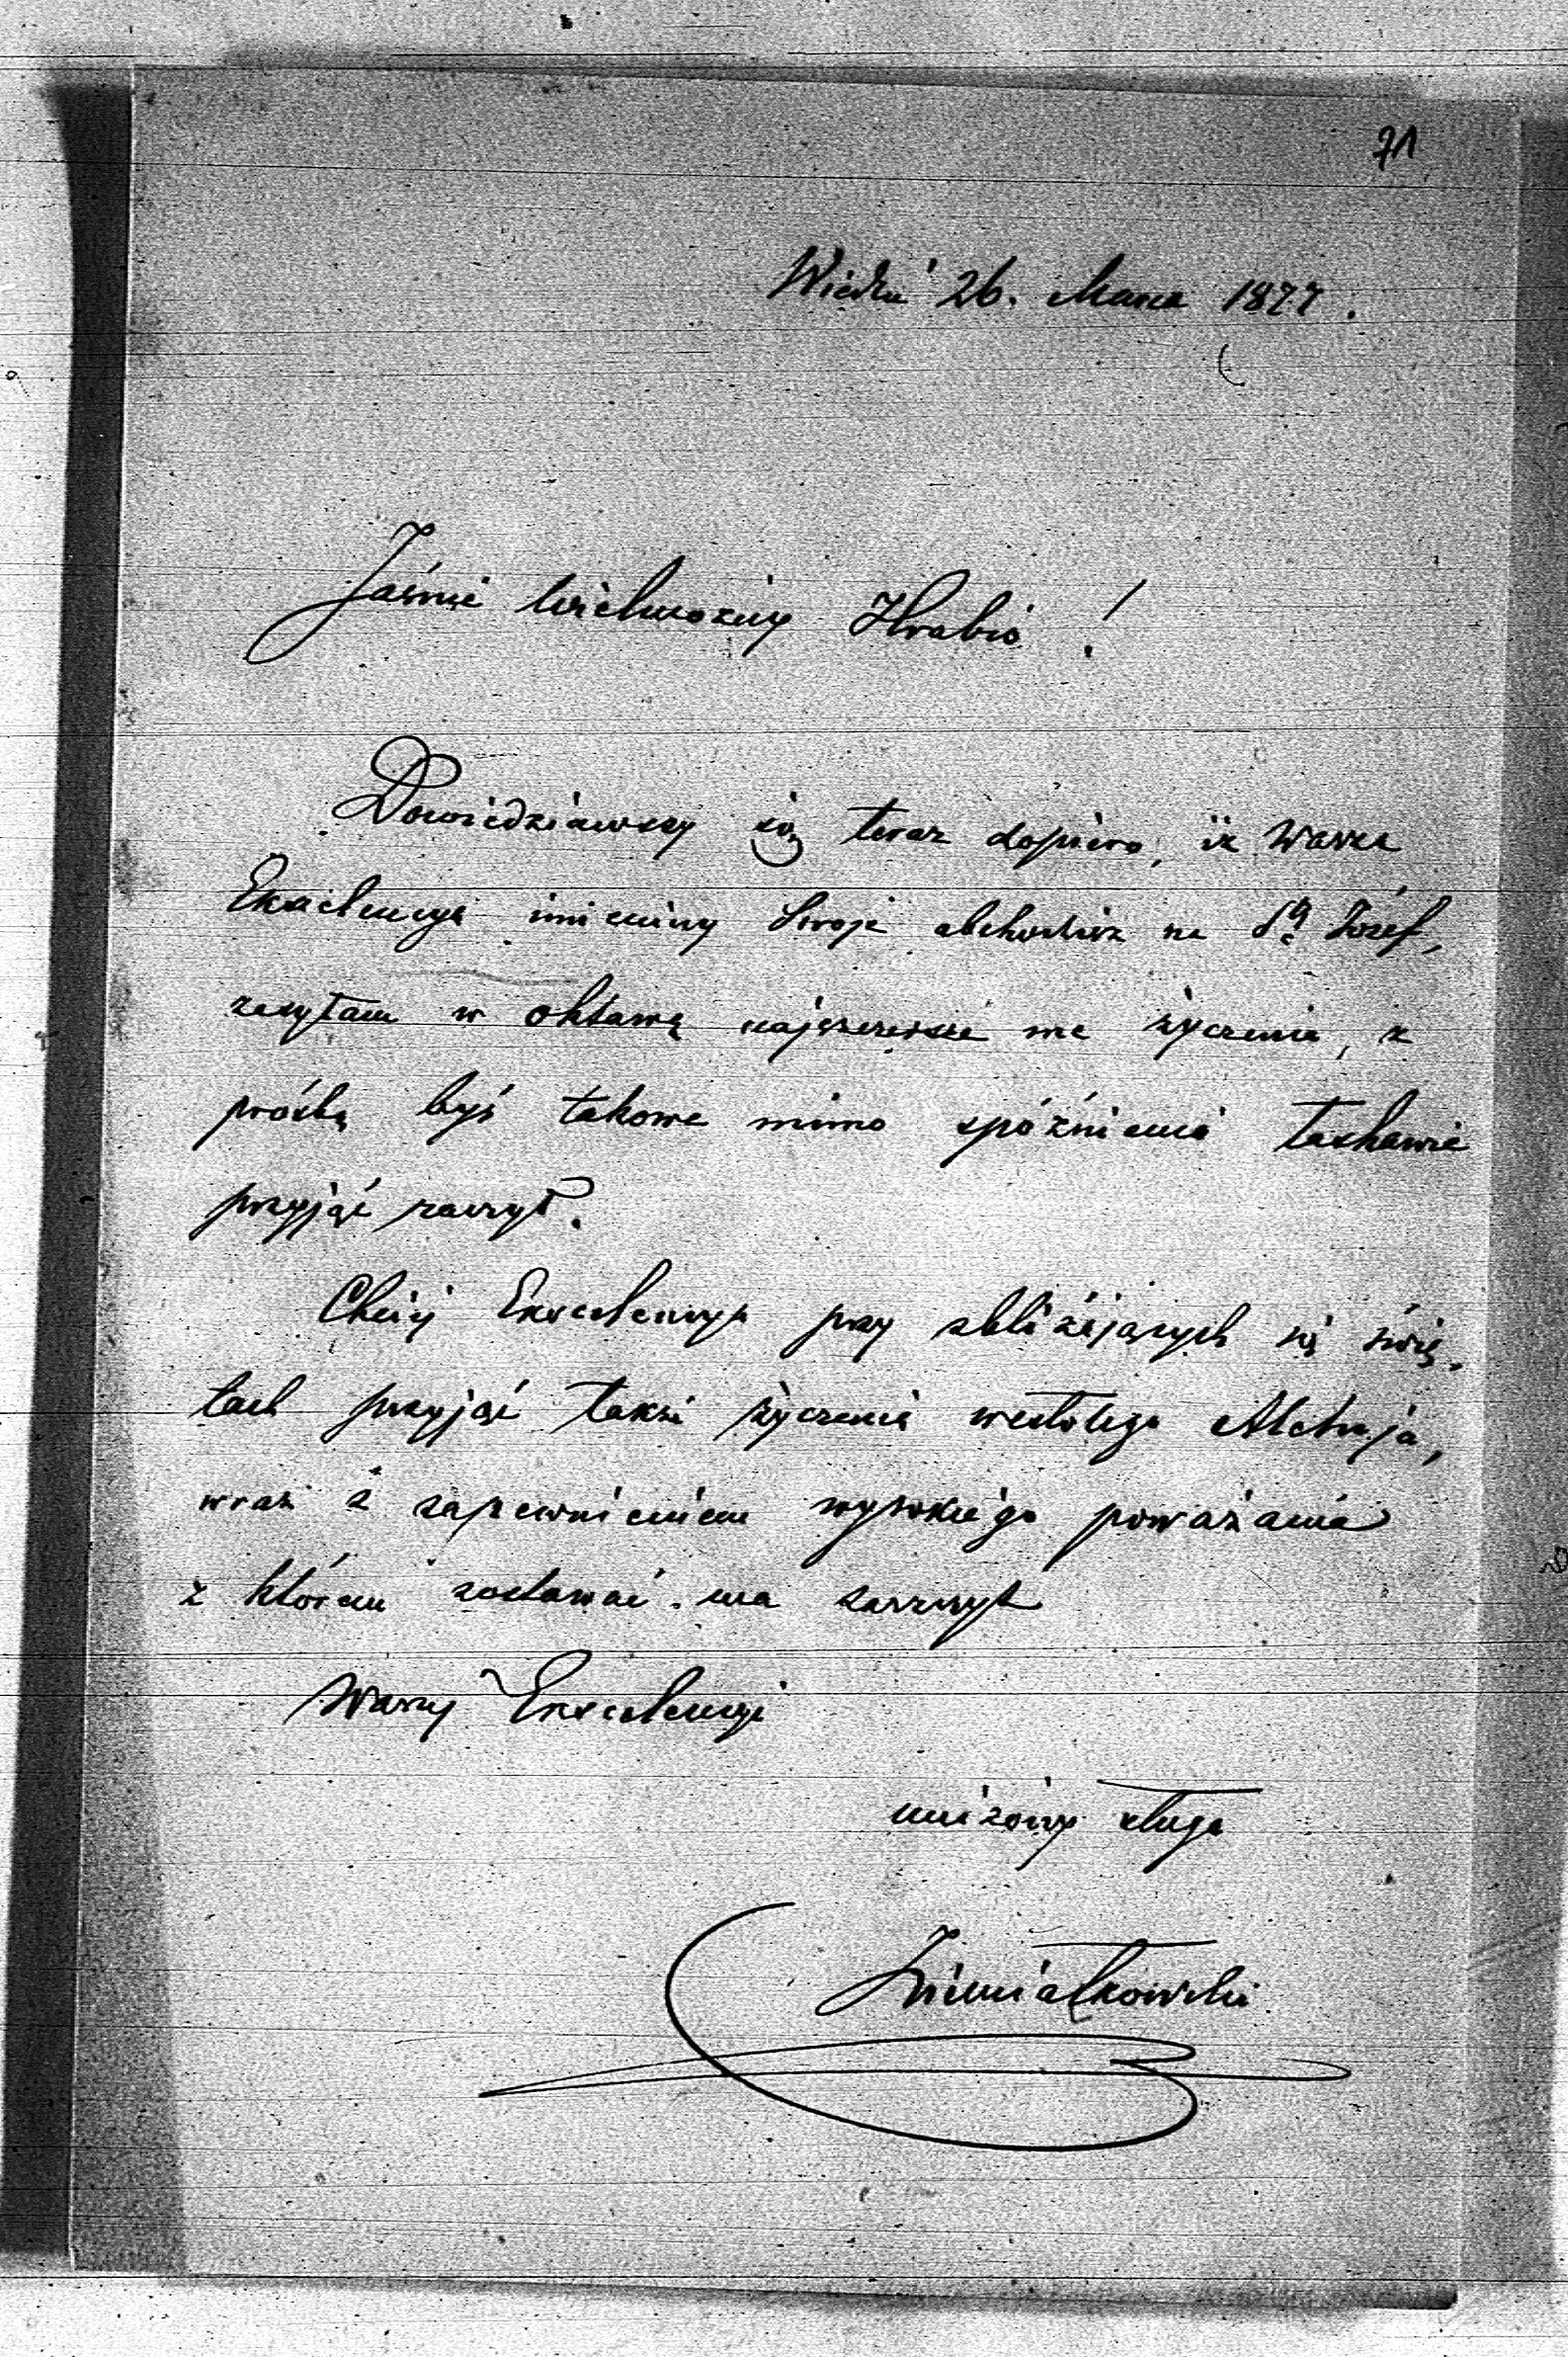 71
Wiedeń 26. Marca 1877.
Jaśnie Wielmożny Hrabio!
Dowiedziawszy się teraz dopiero, iż Wasza
Excelencya imieniny Swoje obchodzisz na Sgo Józef,
zasyłam w oktawę najszczersze me życzenia, z
prośbą byś takowe mimo spóźnienia łaskawie
przyjąć raczył.
Chciéj Excelencya przy zbliżających się świę-
tach przyjąć także życzenia wesołego Aleluja,
wraz z zapewnieniem wysokiego poważania
z którem zostawać ma zaszczyt
Waszej Excelencyi
uniżony sługa
Ziemiałkowski